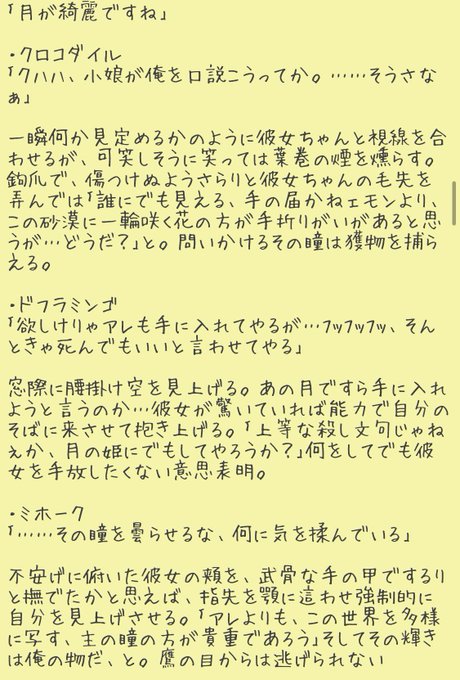 「月が綺麗ですね」
・クロコダイル
「クハハ、小娘が俺を口説こうってか。……そうさな
ぁ」
一瞬何か見定めるかのように彼女ちゃんと視線を合
わせるが、可笑しそうに笑っては葉巻の煙を燻らす。
鉤爪で、傷つけぬようさらりと彼女ちゃんの毛先を
弄んでは「誰にでも見える、手の届かねェモンより、
この砂漠に一輪咲く花の方が手折りがいがあると思
うが…どうだ?」と。問いかけるその瞳は獲物を捕ら
える。
・ドフラミンゴ
「欲しけりゃアレも手に入れてやるが…フッフッフッ、そん
ときゃ死んでもいいと言わせてやる」
窓際に腰掛け空を見上げる。あの月ですら手に入れ
ようと言うのか…彼女が驚いていれば能力で自分の
そばに来させて抱き上げる。「上等な殺し文句じゃね
ぇか、月の姫にでもしてやろうか?」何をしてでも彼
女を手放したくない意思表明。
・ミホーク
「……その瞳を曇らせるな、何に気を揉んでいる」
不安げに俯いた彼女の頬を、武骨な手の甲でするり
と撫でたかと思えば、指先を顎に這わせ強制的に
自分を見上げさせる。「アレよりも、この世界を多様
に写す、主の瞳の方が貴重であろう」そしてその輝き
は俺の物だ、と。鷹の目からは逃げられない